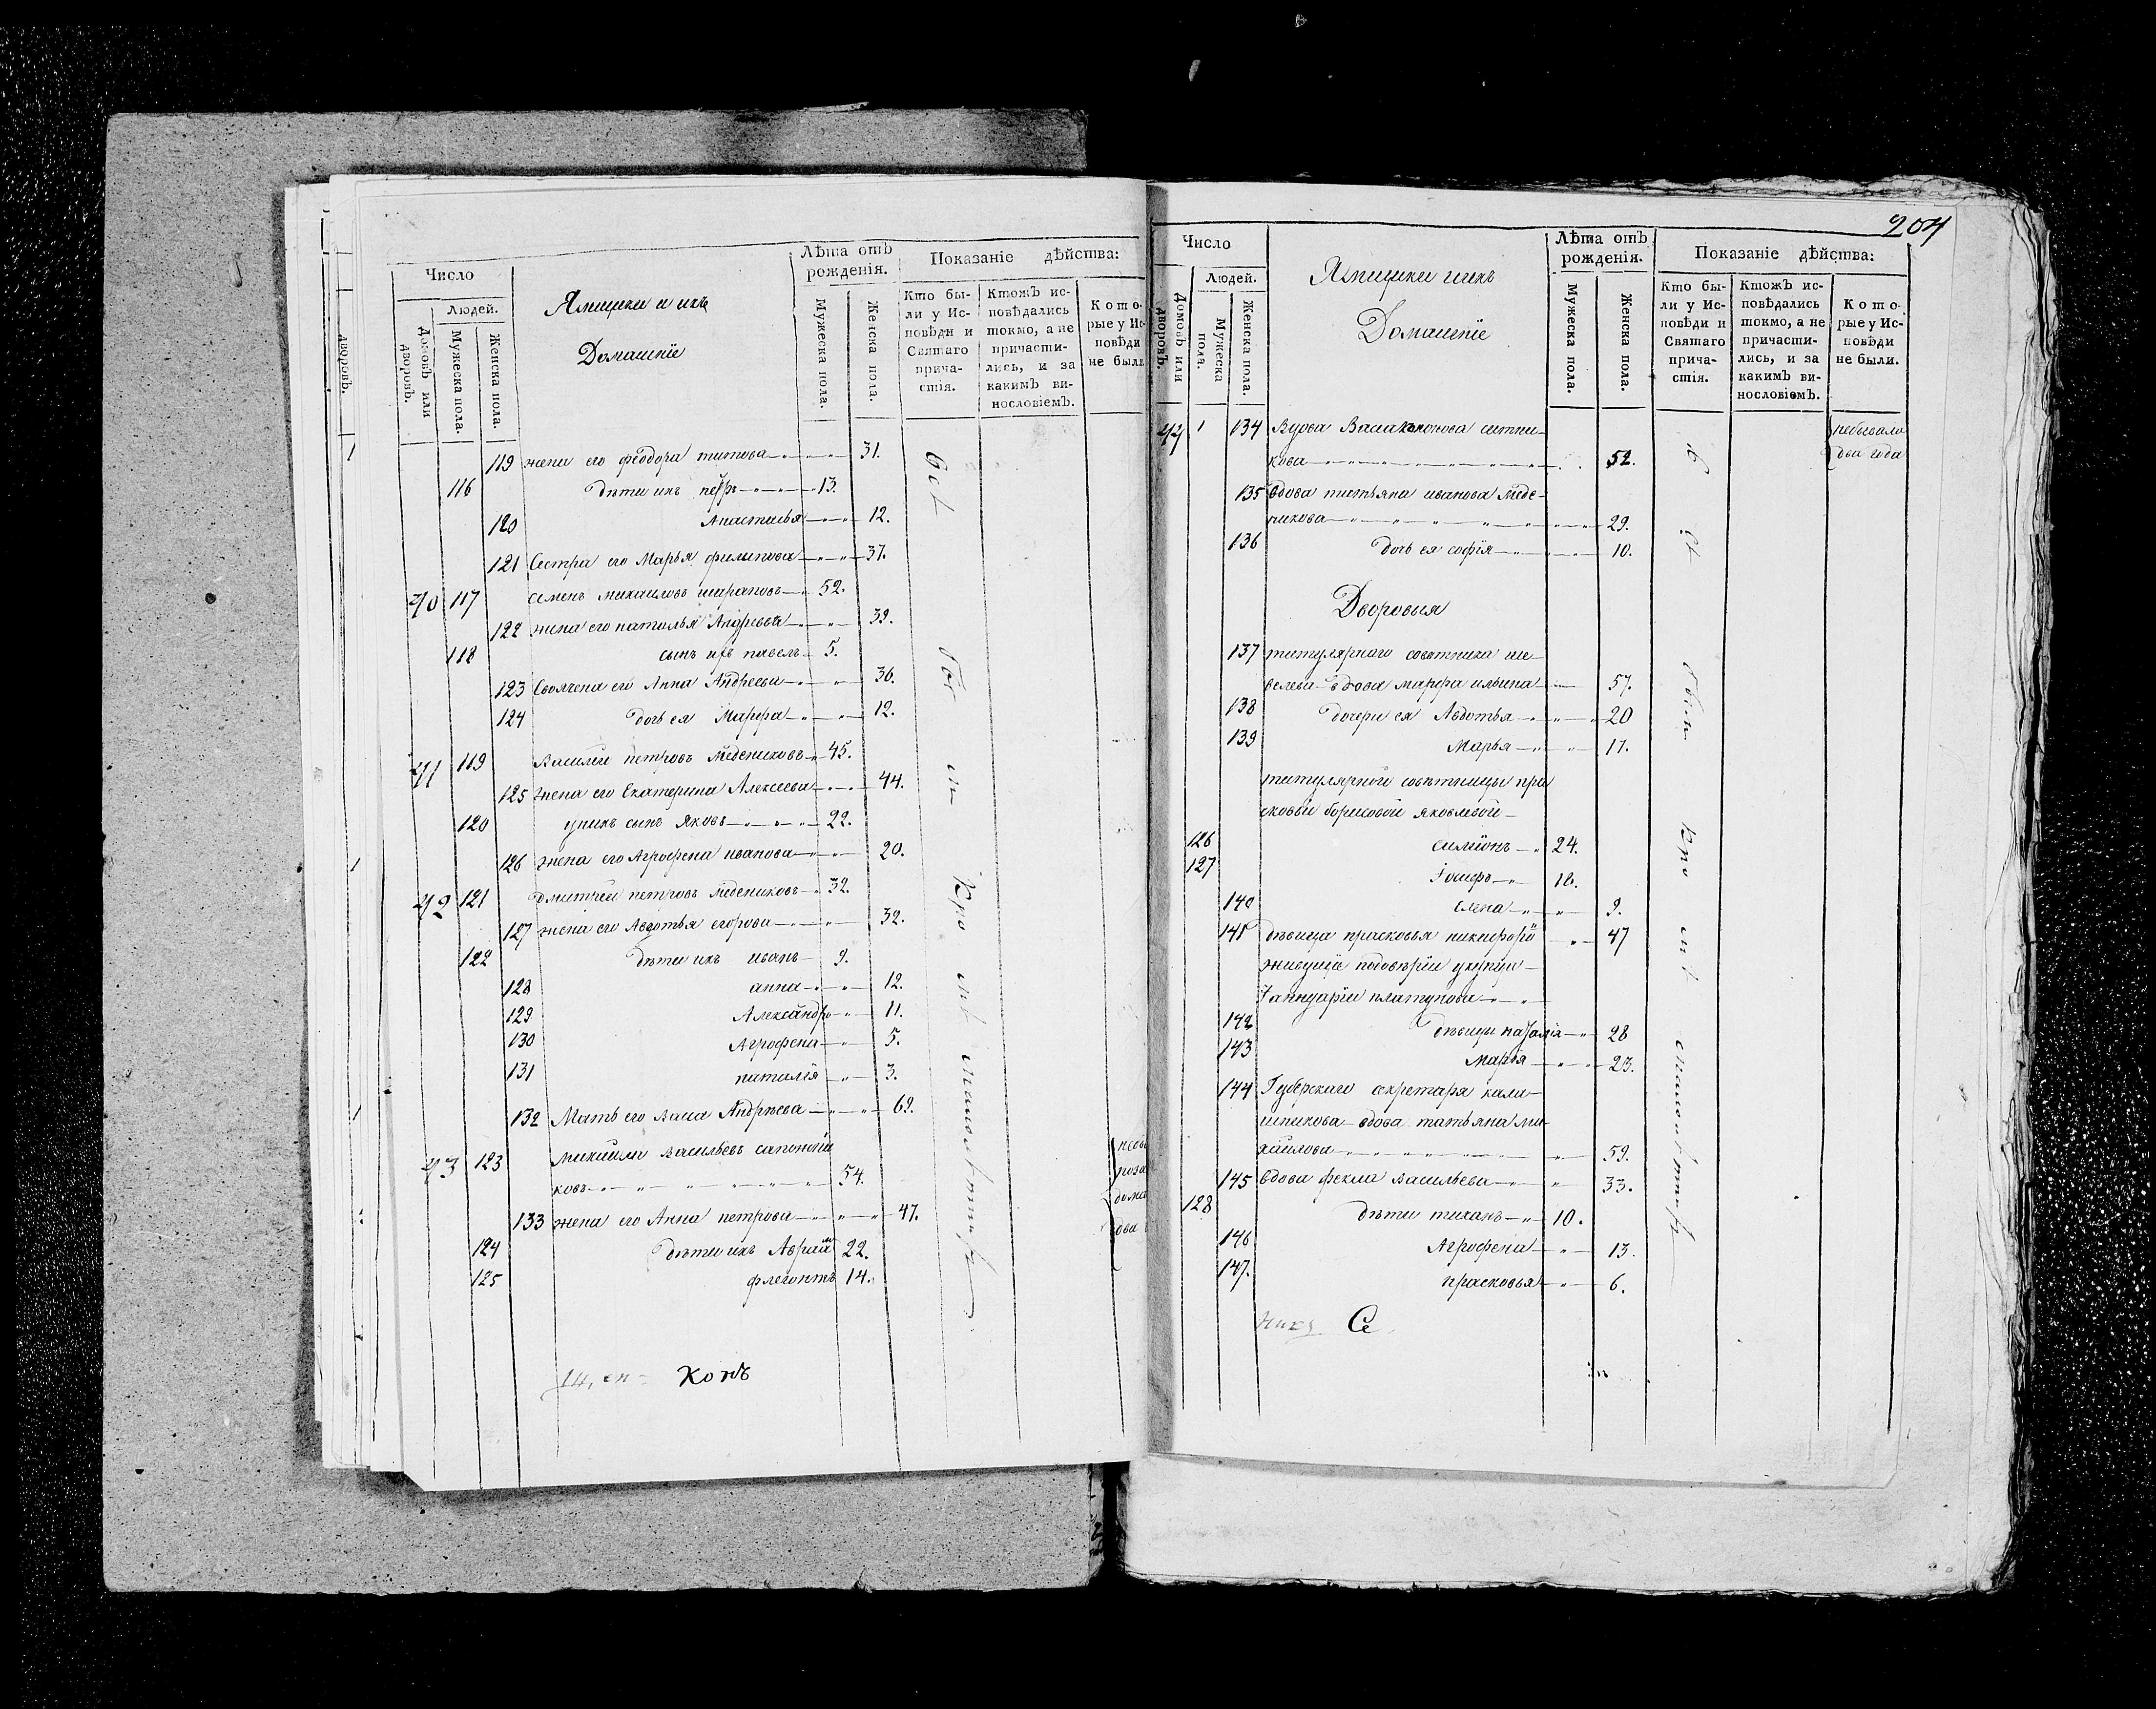 Число
Людей.
Домовъ или дворовъ.
Мужеска пола.
Женска пола.
Ямщики и ихъ
Домашнïе
Лѣта отъ рожденія.
Мужеска пола.
Женска пола.
Показаніе дѣйства:
Кто бы-
ли у Ис-
повѣди и
Святаго
прича-
стія.
Ктожъ ис-
повѣдались
токмо, а не
причасти-
лись, и за
какимъ ви-
нословіемъ.
Кото-
рые у Ис-
повѣди
не были.
дворовъ.
119 жена его феодора титова 31.
116 дѣти ихъ петръ 13.
120 Анастасья 12.
121 Сестра его Марья филипова 37.
40 117 семенъ михаиловъ шараповъ 52.
122 жена его наталья Андреева 39.
118 сынъ ихъ павелъ 5.
123 Своячена его Анна Андреева 36.
124 дочь ея Марфа 12.
41 119 василей петровъ Медениковъ 45.
125 жена его Екатерина Алексеева 44.
120 унихъ сынъ Яковъ 22.
126 жена его Агрофена иванова 20.
42 121 дмитрей петровъ Медениковъ 32.
127 жена его Авдотья егорова 32.
122 дѣти ихъ иванъ 9.
128 анна 12.
129 Александра 11.
130 Агрофена 5.
131 наталïя 3.
132 Мать его васа Андрѣева 69.
43 123 михаила васильевъ сапожни
ковъ 54.
133 жена его Анна петрова 47.
124 дѣти ихъ Аврам 22.
125 флегонтъ 14.
Котъ
204
Число
Людей.
Домовъ или дворовъ.
Мужеска пола.
Женска пола.
Ямщики иихъ
Домашнïе
Лѣта отъ рожденія.
Мужеска пола.
Женска пола.
Показаніе дѣйства:
Кто бы-
ли у Ис-
повѣди и
Святаго
прича-
стія.
Ктожъ ис-
повѣдались
токмо, а не
причасти-
лись, и за
какимъ ви-
нословіемъ.
Кото-
рые у Ис-
повѣди
не были.
44 134 Вдова Васа ситни-
кова 52. небывала
два года
135 вдова татьяна иванова Меде-
никова 29.
136 дочь ея софïя 10.
Дворовыя
137 титулярнаго советника ше-
велева вдова марфа ильина 57.
138 дочери ея Авдотья 20
139 Марья 17.
титулярной советницы пра
сковьи борисовой яковлевой
126 симïонъ 24.
127 Iосифъ 18.
140 елена 9.
141 дѣвица прасковья никифоро 47
живущïе
Iаннуарïи платунова
142 дѣвицы наталïя 28
143 Марïя 23.
144 Губерскаго секретаря кала-
шникова вдова татьяна ми-
хаилова 59.
145 вдова фекла васильева 33.
128 дѣти тиханъ 10.
146 Агрофена 13.
147. прасковья 6.
Се